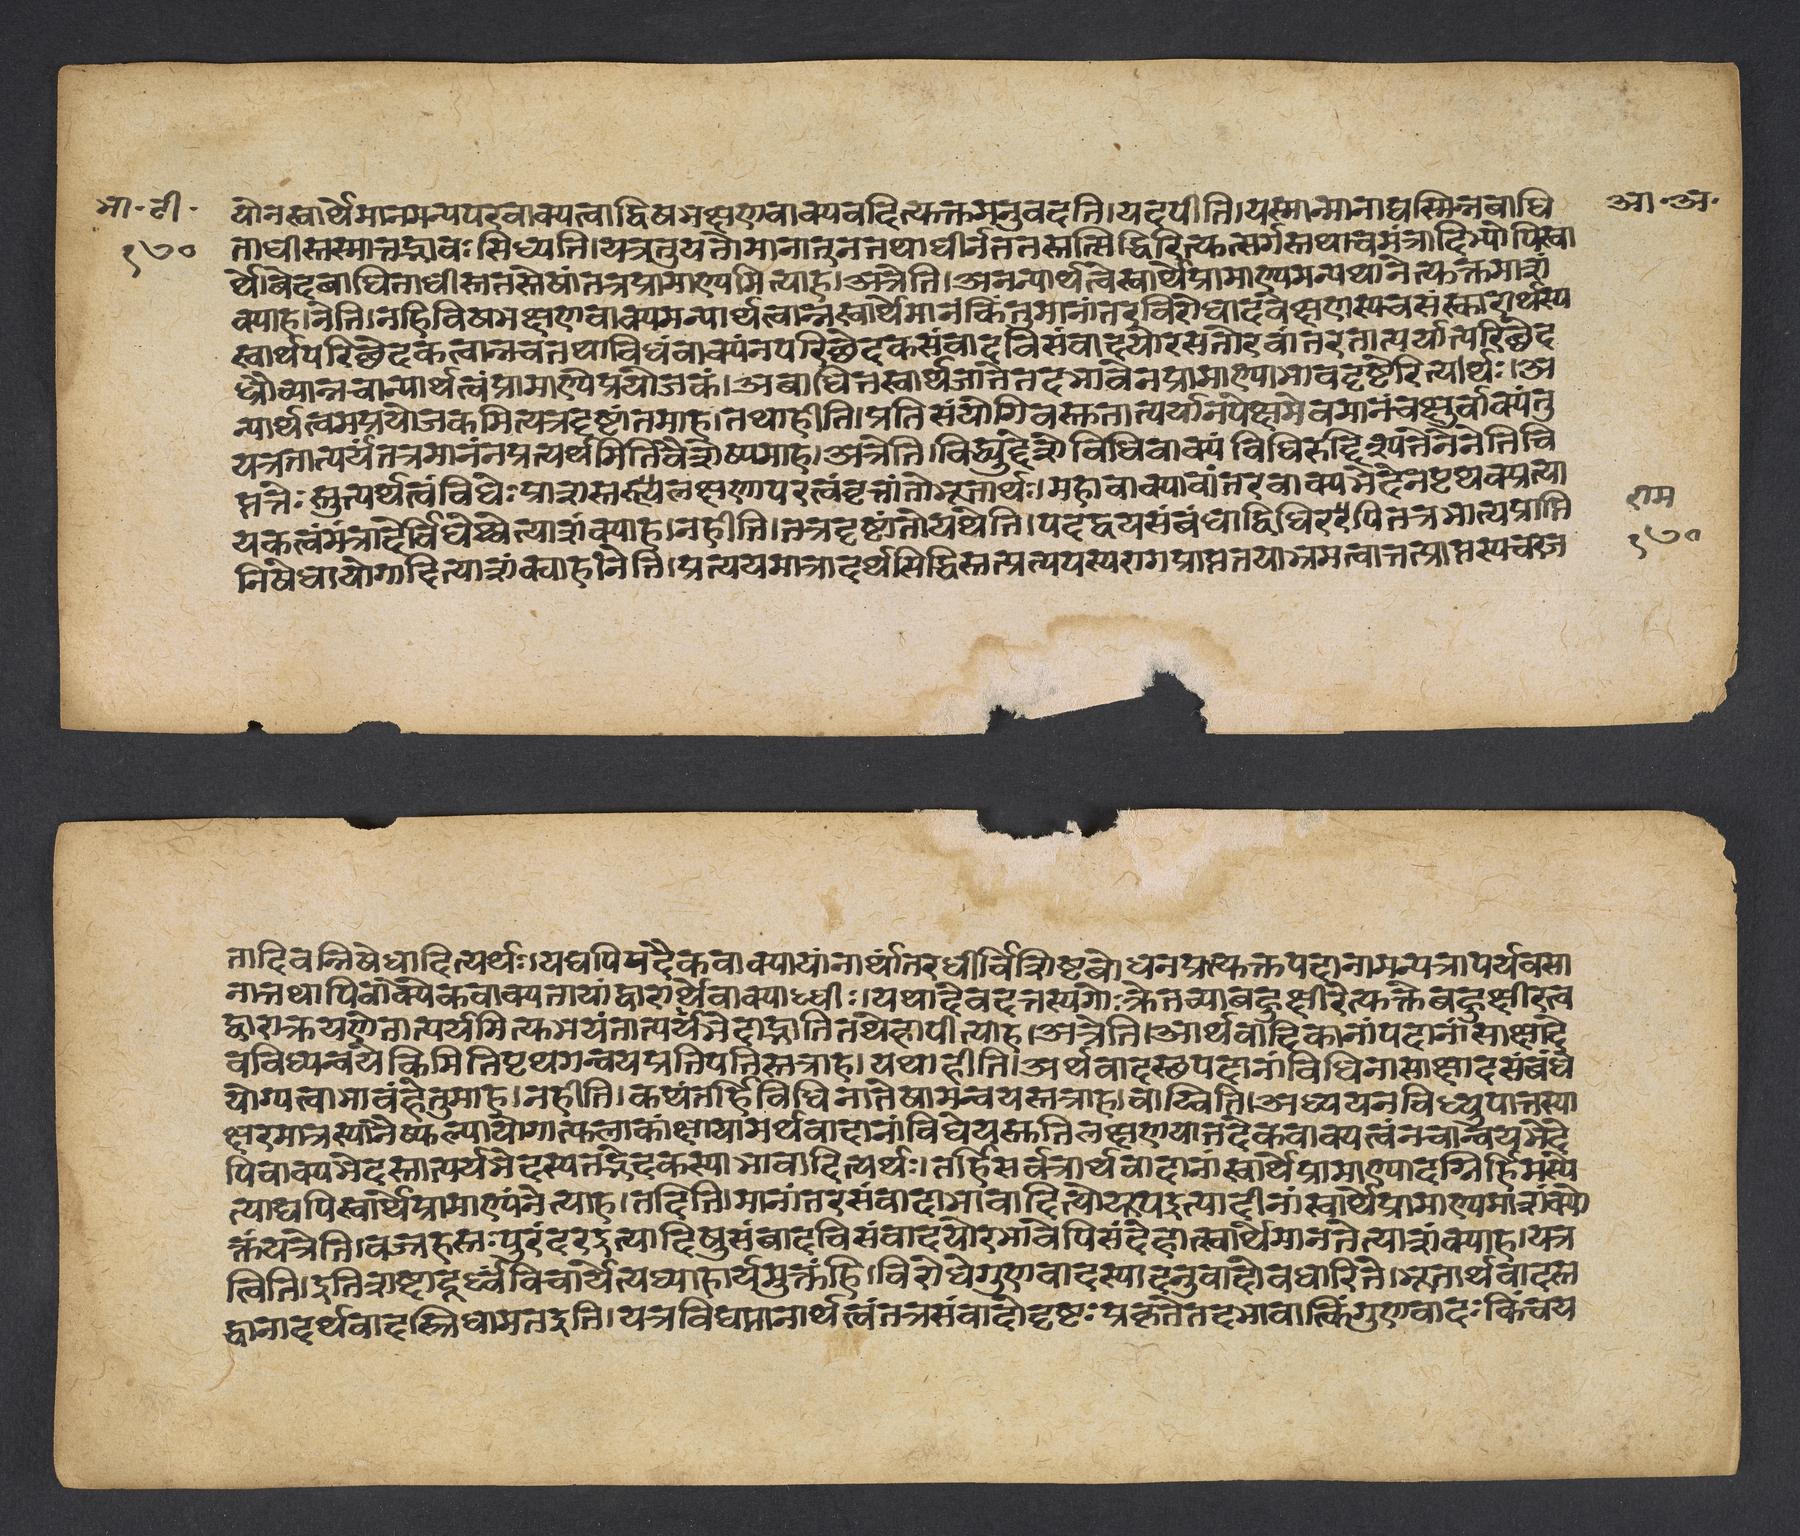 भा॰ टी॰
१७०
आ॰ अ॰
योनस्वार्थेमानमन्यपरवाक्यत्वाद्विषभक्षणवाक्यवदित्युक्तमनुवदति।यदपीति।यस्मान्मानाद्यस्मिन्नबाधि
ताधीस्तस्मात्तद्भावःसिध्यति।यत्रतुयतोमानान्ननतथाधीर्नततस्तत्सिद्धिरित्युत्सर्गस्तथाचमंत्रादिभ्योपिस्वा
र्थेचेदबाधिताधीस्ततस्तेषांतत्रप्रामाण्यमित्याह।अत्रेति।अनन्यार्थत्वेस्वार्थेप्रामाण्यमन्यथानेत्युक्तमाशं
क्याह।नेति।नहिविषभक्षणवाक्यमन्यार्थत्वान्नस्वार्थेमानंकिंतुमानांतरविरोधादवेक्षणस्यचसंस्कारार्थस्य
स्वार्थपरिछेदकत्वान्नचतथाविधंवाक्यंनपरिछेदकसंवादविसंवादयोरसतोरवांतरतात्पर्यात्परिछेद
ध्रौव्यान्नचान्यार्थत्वंप्रामाण्येप्रयोजकं।अबाधितस्वार्थज्ञानेतदभावेनप्रामाण्याभावदृष्टेरित्यर्थः।अ
न्यार्थत्वमप्रयोजकमित्यत्रदृष्टांतमाह।तथाहीति।प्रतिसंयोगिवस्तुतात्पर्यानपेक्षमेवमानंचक्षुर्वाक्यंतु
यत्रतात्पर्यंतत्रमानंनप्रत्यर्थमितिवैशेष्यमाह।अत्रेति।विध्युद्देशोविधिवाक्यंविधिरुद्दिश्यतेनेनेतिवि
प्तत्तेःस्तुत्यर्थत्वंविधेःप्राशस्त्यलक्षणापरत्वंवृत्तांतोभूतार्थः।महावाक्यावांतरवाक्यभेदेनपृथक्प्रत्या
यकत्वंमंत्रादेर्विधेश्चेत्याशंक्याह।नहीति।तत्रदृष्टांतोयथेति।पदद्वयसंबंधाद्विधिरपितत्रभात्यप्राप्ति
निषेधायोगादित्याशंक्याह।नेति।प्रत्ययमात्रादर्थसिद्धिस्तत्प्रत्ययस्यरागप्राप्ततयाभ्रमत्वात्तत्प्राप्तस्यचरज
राम
१७०
तादिवन्निषेधादित्यर्थः।यद्यपिपदैकवाक्यायांनार्थांतरधीर्विशिष्टबोधनप्रत्युक्तपदानामन्यत्रापर्यवसा
नात्तथापिवाक्यैकवाक्यतायांद्वारार्थेवाक्याद्धीः।यथादेवदत्तस्यगौःक्रेतव्याबहुक्षीरेत्युक्तेबहुक्षीरत्व
द्वाराक्रयणेतात्पर्यमित्युभयंतात्पर्यभेदाद्भातितथेहापीत्याह।अत्रेति।आर्थवादिकानांपदानांसाक्षादे
वविध्यन्वयेकिमितिपृथगन्वयप्रतिपत्तिस्तत्राह।यथाहीति।अर्थवादस्थपदानांविधिनासाक्षादसंबंधे
योग्यत्वाभावंहेतुमाह।नहीति।कथंतर्हिविधिनातेषामन्वयस्तत्राह।वाय्विति।अध्ययनविध्युपात्तस्या
क्षरमात्रस्यानैष्फल्यायोगात्फलाकांक्षायामर्थवादानांविधेयस्तुतिलक्षणयातदेकवाक्यत्वंनचान्वयभेदे
पिवाक्यभेदस्तात्पर्यभेदस्यतद्भेदकस्याभावादित्यर्थः।तर्हिसर्वत्रार्थवादानांस्वार्थेप्रामाण्यादग्निर्हिमस्ये
त्याद्यपिस्वार्थेप्रामाण्यंनेत्याह।तदिति।मानांतरसंवादाभावादित्योयूपइत्यादीनांस्वार्थेप्रामाण्यमाशंक्यो
क्तंयत्रेति।वज्रहस्तःपुरंदरइत्यादिषुसंवादविसंवादयोरभावेपिसंदेहात्स्वार्थेमानतेत्याशंक्याह।यत्र
त्विति।इतिशब्दादूर्ध्वंविचार्येत्यध्याहार्यमुक्तंहि।विरोधेगुणवादस्यादनुवादोवधारिते।भूतार्थवादस्त
द्धानादर्थवादस्त्रिधामतइति।यत्रविधेर्मानार्थत्वंतत्रसंवादोदृष्टःप्रकृतेतदभावात्किंगुणवादःकिंचय